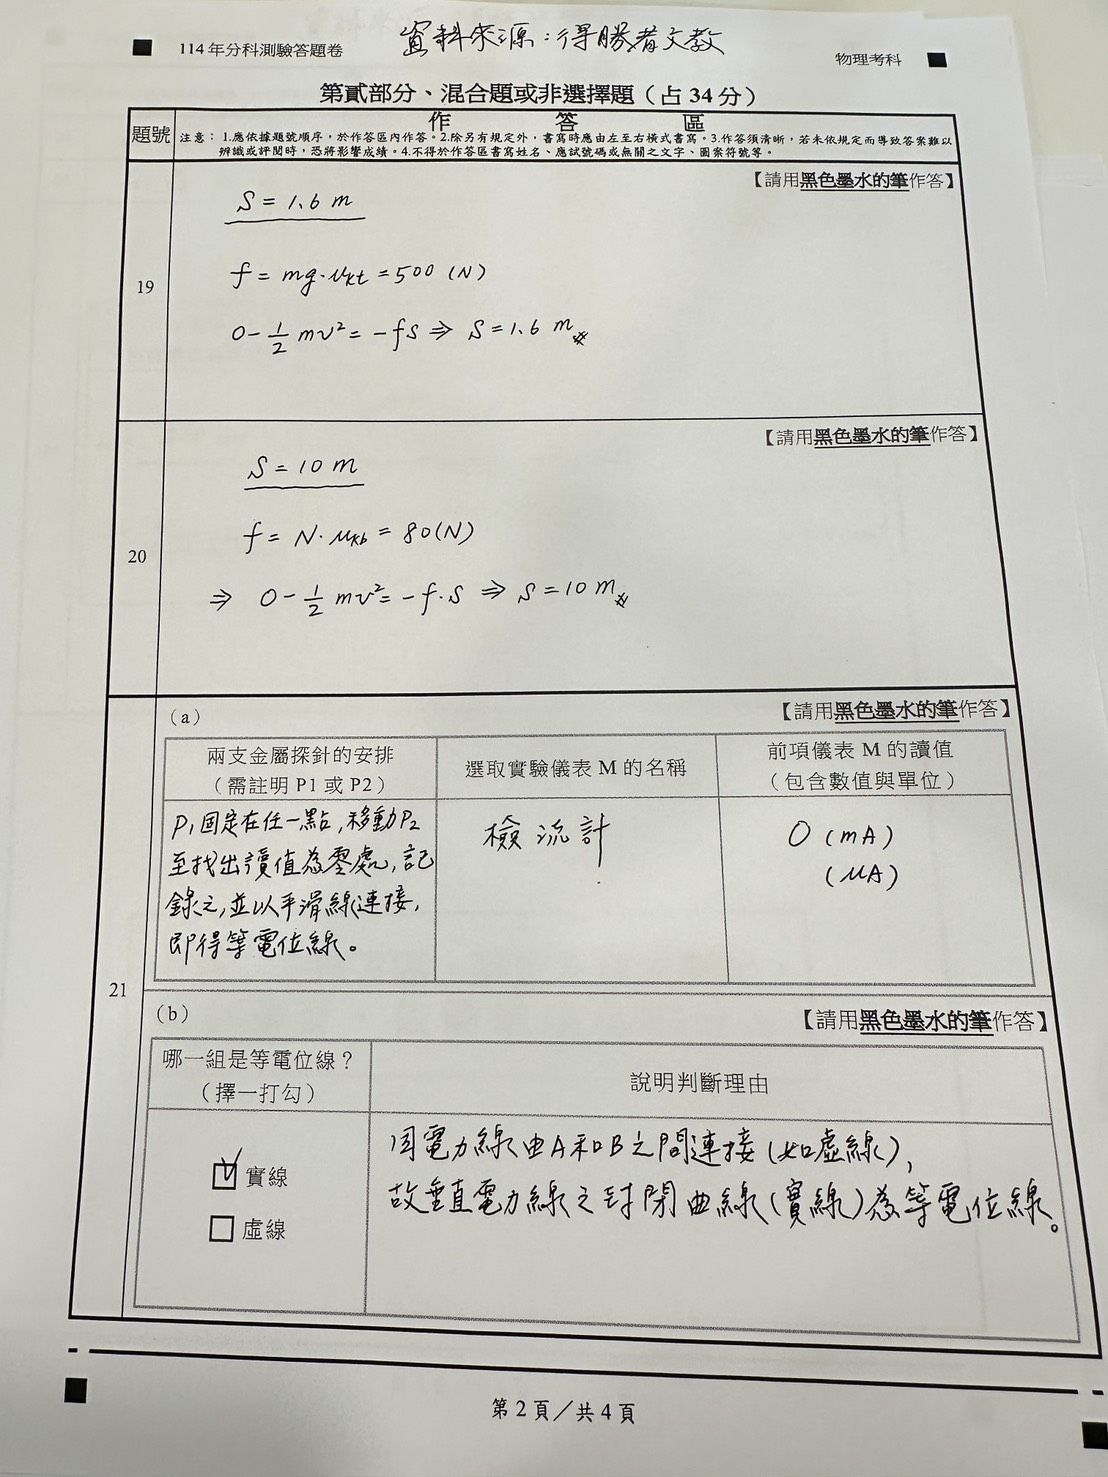 資料來源：得勝者文教
114年分科測驗答題卷
物理考科
第貳部分、混合題或非選擇題（占34分）
題號
作 答 區
注意：1.應依據題號順序，於作答區內作答。2.除另有規定外，書寫時應由左至右橫式書寫。3.作答須清晰，若未依規定而導致答案難以
辨識或評閱時，恐將影響成績。4.不得於作答區書寫姓名、應試號碼或無關之文字、圖案符號等。
【請用黑色墨水的筆作答】
S = 1.6 m
19
f = mg·μkt = 500 (N)
0 - 1/2 mv² = -fs ⇒ S = 1.6 m #
【請用黑色墨水的筆作答】
S = 10 m
20
f = N·μkb = 80 (N)
⇒ 0 - 1/2 mv² = -f·s ⇒ S = 10 m #
21
(a)
【請用黑色墨水的筆作答】
兩支金屬探針的安排
（需註明 P1 或 P2）
選取實驗儀表 M 的名稱
前項儀表 M 的讀值
（包含數值與單位）
P1固定在任一點，移動P2
至找出讀值為零處，記
錄之，並以平滑線連接，
即得等電位線。
檢流計
0 (mA)
(μA)
(b)
【請用黑色墨水的筆作答】
哪一組是等電位線？
（擇一打勾）
說明判斷理由
☑ 實線
☐ 虛線
因電力線由A和B之間連接(如虛線)，
故垂直電力線之封閉曲線(實線)為等電位線。
第 2 頁／共 4 頁